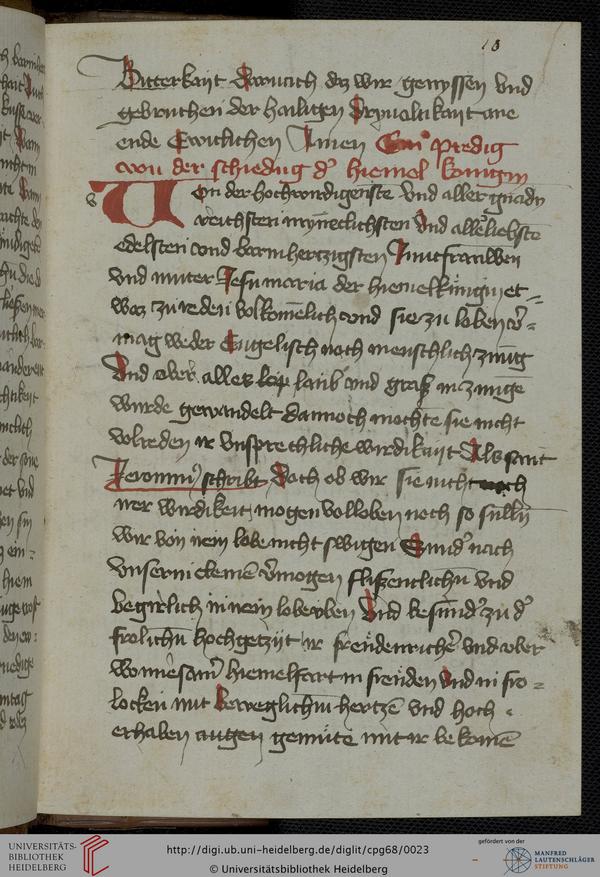 13
Bitterkait Darnach das wir genyssen vnd
gebruchen der hailigen Dryualtikait ane
ende Ewiclichen Amen Ein predig
von der schiedung dˀ hiemel kúnigin
Von der hochwirdigenste vnd aller gnaden
reichsten mynneclichsten Vnd allerliebste
edelsten vnd barmhertzigsten Junckfrauwen
vnd muter Jesu maria der hiemelkúnigin et-
was zu reden volkomelich vnd sie zu loben
mag weder Engelisch noch menschlich zung
Vnd ober alles lop laub vnd graß in zunge
wurde gewandelt dannoch mochte sie nicht
volreden ir vnsprechliche wirdikait Als sant
Jeronimus schribt Doch ob wir sie nicht nach
irer wirdikeit mogen volloben noch so sullen
wir von irem lobe nicht swigen Sundˀ nach
vnserm cleinen vermogen flißenclichn vnd
begirlich in irem lobe vben Vnd besundˀ zu dˀ
frolichn hochgezijt ir freudenricher vnd ober
wonnesamˀ hiemelfart in freuden Vnd in fro-
locken mit beweglichem hertzen vnd hoch
erhaben augen gemute mit ir bekomen
UNIVERSITÄTS-
BIBLIOTHEK
HEIDELBERG
http://digi.ub.uni-heidelberg.de/diglit/cpg68/0023
© Universitätsbibliothek Heidelberg
gefördert von der
MANFRED
LAUTENSCHLÄGER
STIFTUNG